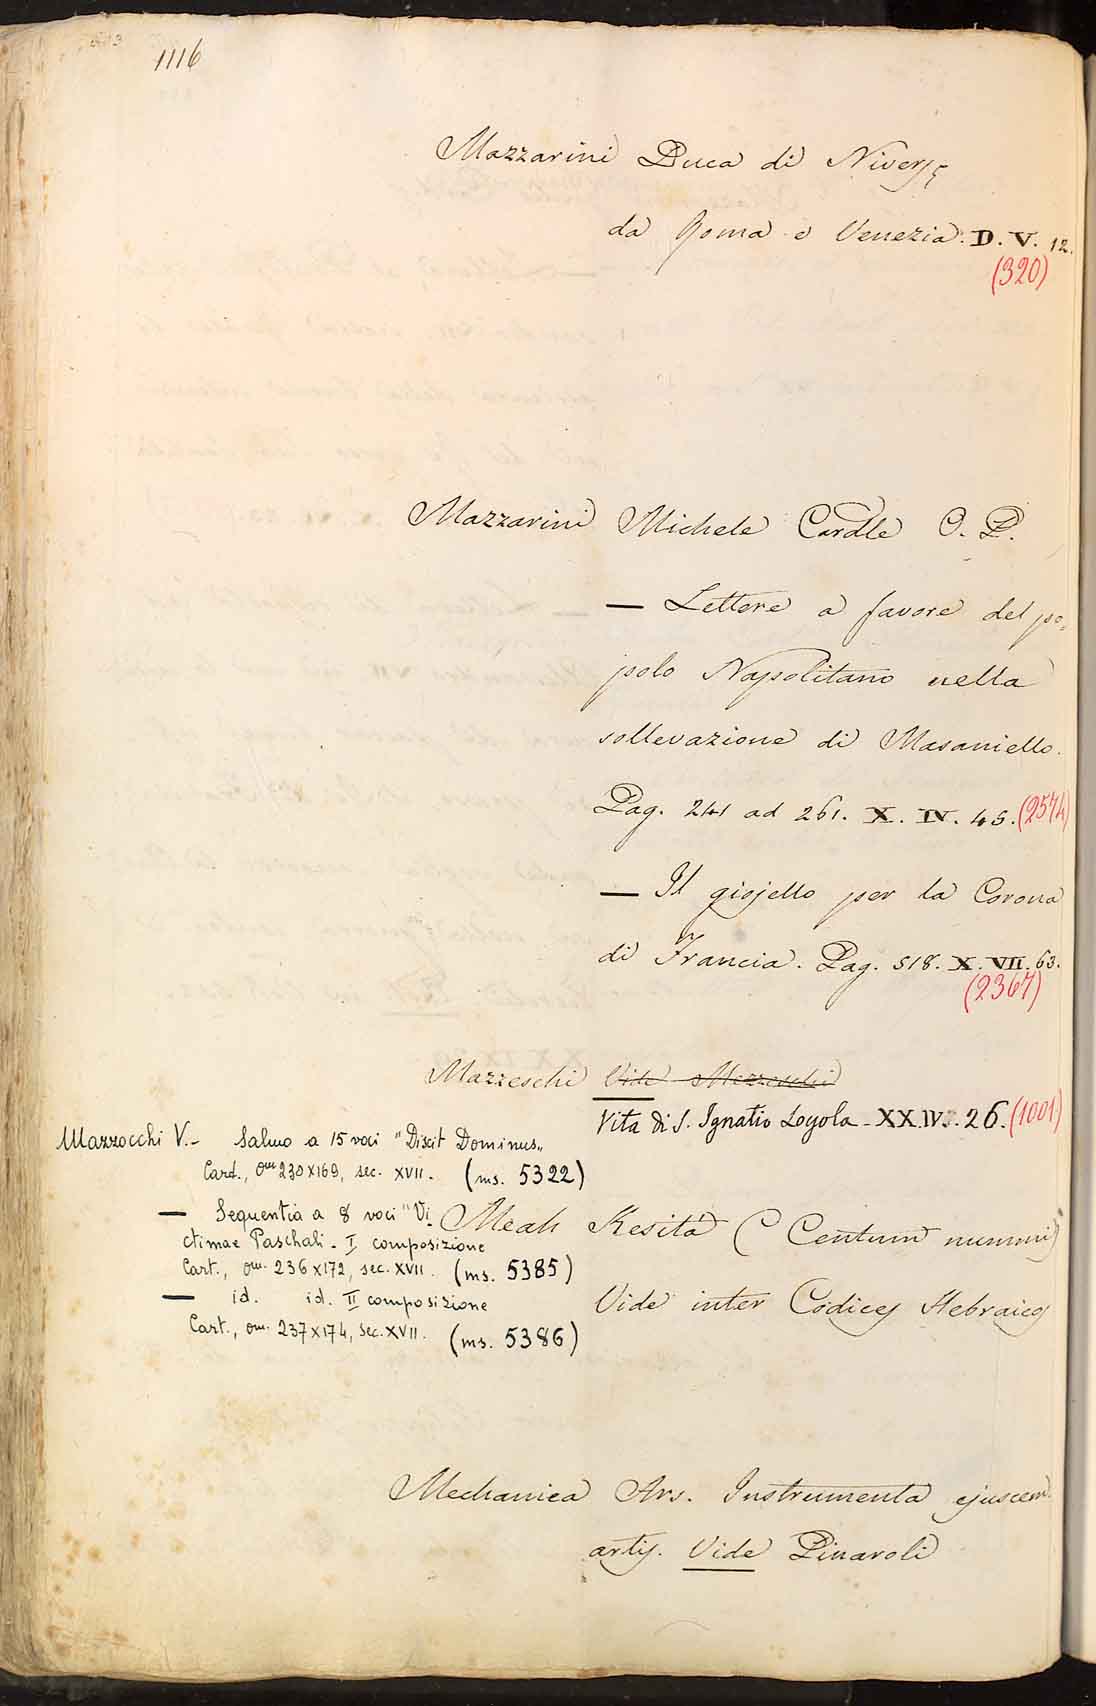 1116
Mazzarini Duca di Nivers
da Roma e Venezia. D. V. 12.
(320)
Mazzarini Michele Cardle O. P.
— Lettere a favore del po=
polo Napolitano nella
sollevazione di Masaniello.
Pag. 241 ad 261. X. IV. 45. (2574)
— Il giojello per la Corona
di Francia. Pag. 518. X. VII. 63.
(2367)
Mazzeschi Vide Mezzeschi
Vita di S. Ignatio Loyola - XX.IV. 26. (1001)
Mazzocchi V. - Salmo a 15 voci "Dixit Dominus"
Cart., omm 230x169, sec. XVII. (ms. 5322)
— Sequentia a 8 voci "Vi
ctimae Paschali - I composizione
Cart., omm. 236x172, sec. XVII. (ms. 5385)
— id. id. II composizione
Cart., omm. 237x174, sec. XVII. (ms. 5386)
Meah Kesità (Centum nummi)
Vide inter Codices Hebraicos
Mechanica Ars. Instrumenta ejuscem
artis. Vide Pinaroli